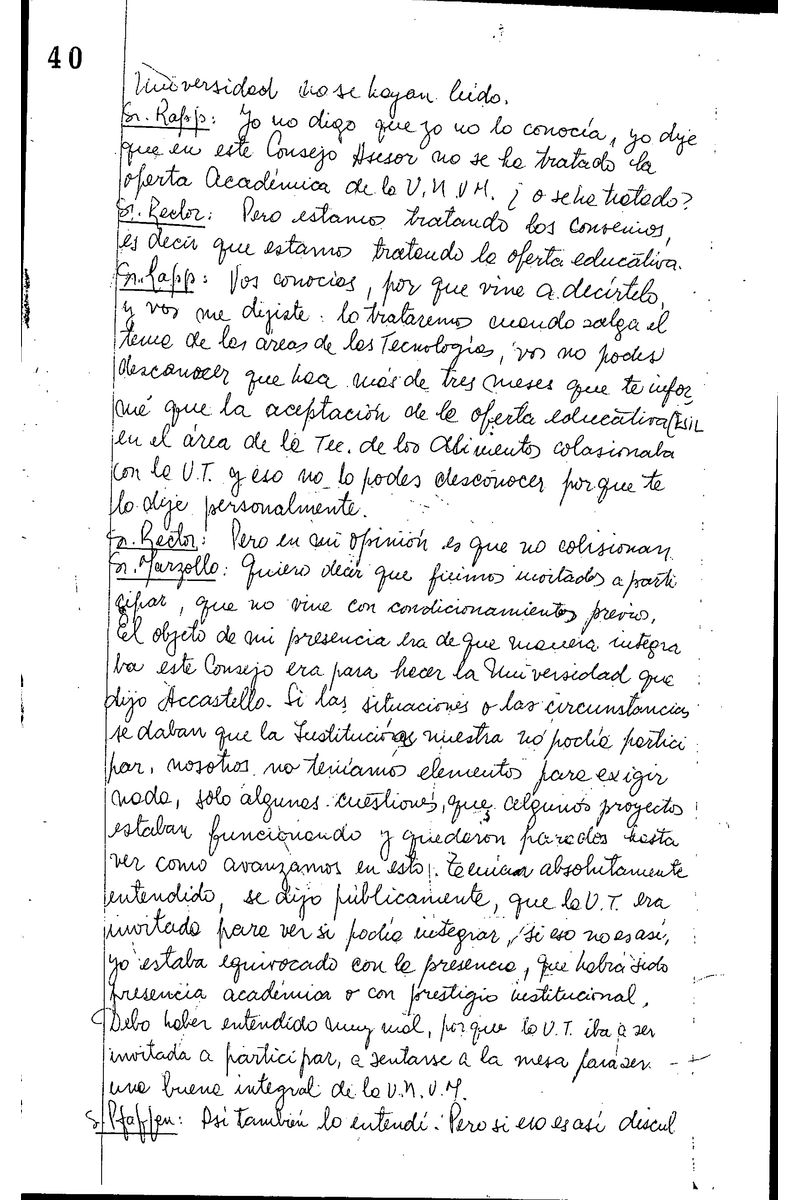 40
Universidad no se hayan leido.
Sr. Rapp: Yo no digo que yo no lo conocía, yo dije
que en este Consejo Asesor no se ha tratado la
oferta Académica de la U.N.V.M. ¿o se ha tratado?
Sr. Rector: Pero estamos tratando los convenios,
es decir que estamos tratando la oferta educativa.
Sr. Rapp: Vos conocías, por que vine a decírtelo,
y vos me dijiste: lo trataremos cuando salga el
tema de las áreas de las Tecnologías, vos no podes
desconocer que hace más de tres meses que te infor
mé que la aceptación de la oferta educativa
en el área de la Tec. de los Alimentos colasionaba
con la U.T. y eso no lo podes desconocer porque te
lo dije personalmente.
Sr. Rector: Pero en mi opinión es que no colisionan
Sr. Marzollo: Quiero decir que fuimos invitados a parti
cipar, que no vine con condicionamientos previos.
El objeto de mi presencia era de que manera integra
ba este Consejo era para hacer la Universidad que
dijo Accastello. Si las situaciones o las circunstancias
se daban que la Institución nuestra no podía partici
par, nosotros no teníamos elementos para exigir
nada, solo algunas cuestiones, que algunos proyectos
estaban funcionando y quedaron parados hasta
ver como avanzamos en esto. Tenian absolutamente
entendido, se dijo públicamente, que la U.T. era
invitada para ver si podía integrar, si eso no es así,
yo estaba equivocado con la presencia, que habrá sido
presencia académica o con prestigio institucional,
Debo haber entendido muy mal, porque la U.T. iba a ser
invitada a participar, a sentarse a la mesa para ser
una buena integral de la U.N.V.M.
S. Pfaffen: Asi también lo entendí. Pero si eso es así discul